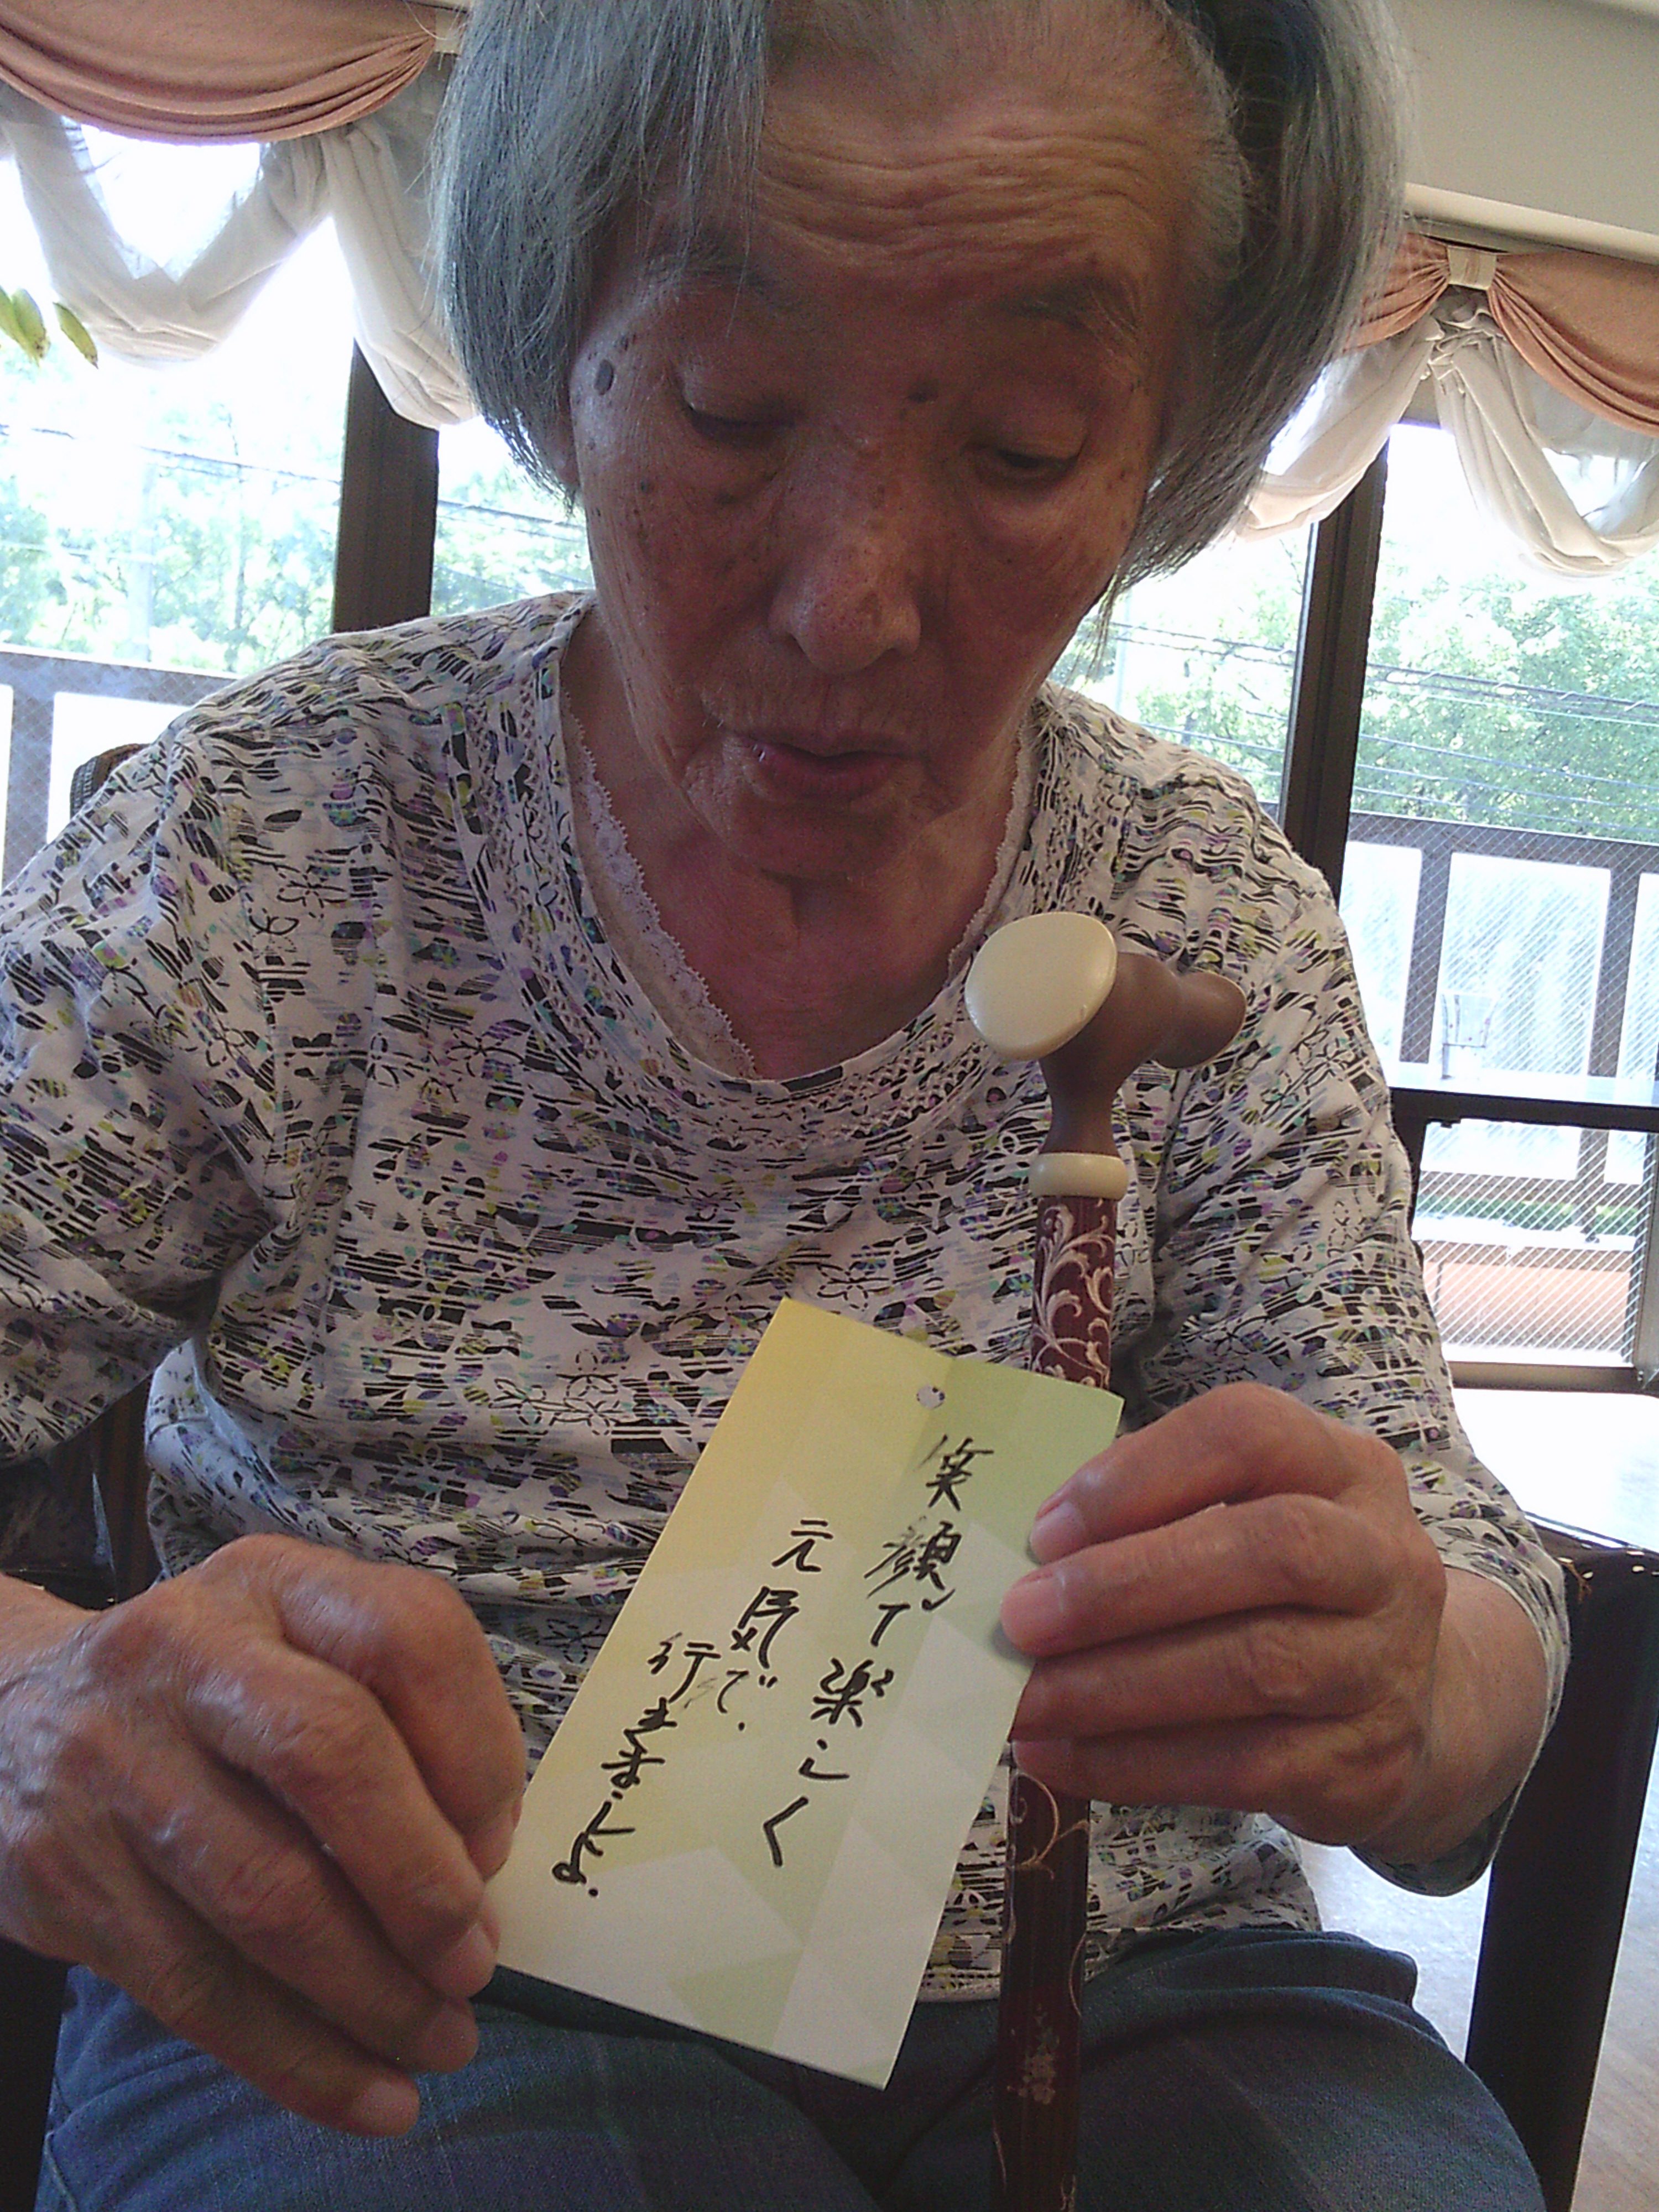 笑顔で楽しく
元気で、
行きましょ。